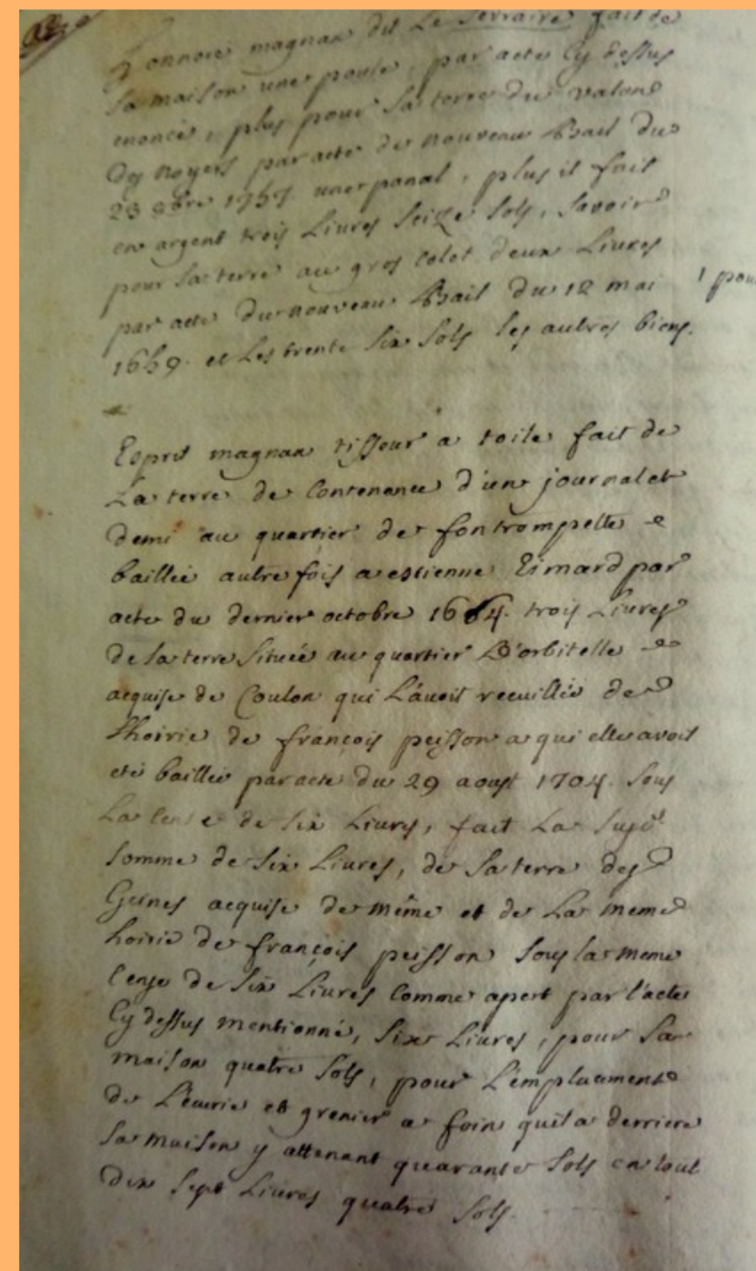 honnore magnan dit Le Serraire fait de
sa maison une poule, par acte cy dessus
enoncé, plus pour sa terre du valond
des noyers par acte de nouveau Bail du
23 9bre 1757 une panal, plus il fait
en argent trois Livres seize sols, savoir
pour sa terre au gros Colet deux Livres
par acte du nouveau Bail du 12 mai
1 pour
1659. et Les trente six sols les autres biens.
Esprit magnan tisseur a toile fait de
La terre de Contenance d'un journal et
demi au quartier de fontrompette
baillée autre fois a estienne Eimard par
acte du dernier octobre 1664. trois Livres
de sa terre située au quartier D'orbitelle
acquise de Coulon qui L'avoit recuillie de
Lhoirie de françois peisson a qui elle avoit
eté baillée par acte du 29 aoust 1704. sous
La Cense de six Livres, fait La susd
somme de six Livres, de sa terre des
acquise de même et de La meme
hoirie de françois peisson sous la meme
Cense de six Livres Comme apert par l'acte
Cy dessus mentionné, six Livres, pour sa
maison quatre sols, pour L'emplacement
de L'ecurie et grenier a foin quil a derriere
sa maison y attenant quarante sols en tout
dix sept Livres quatre sols.